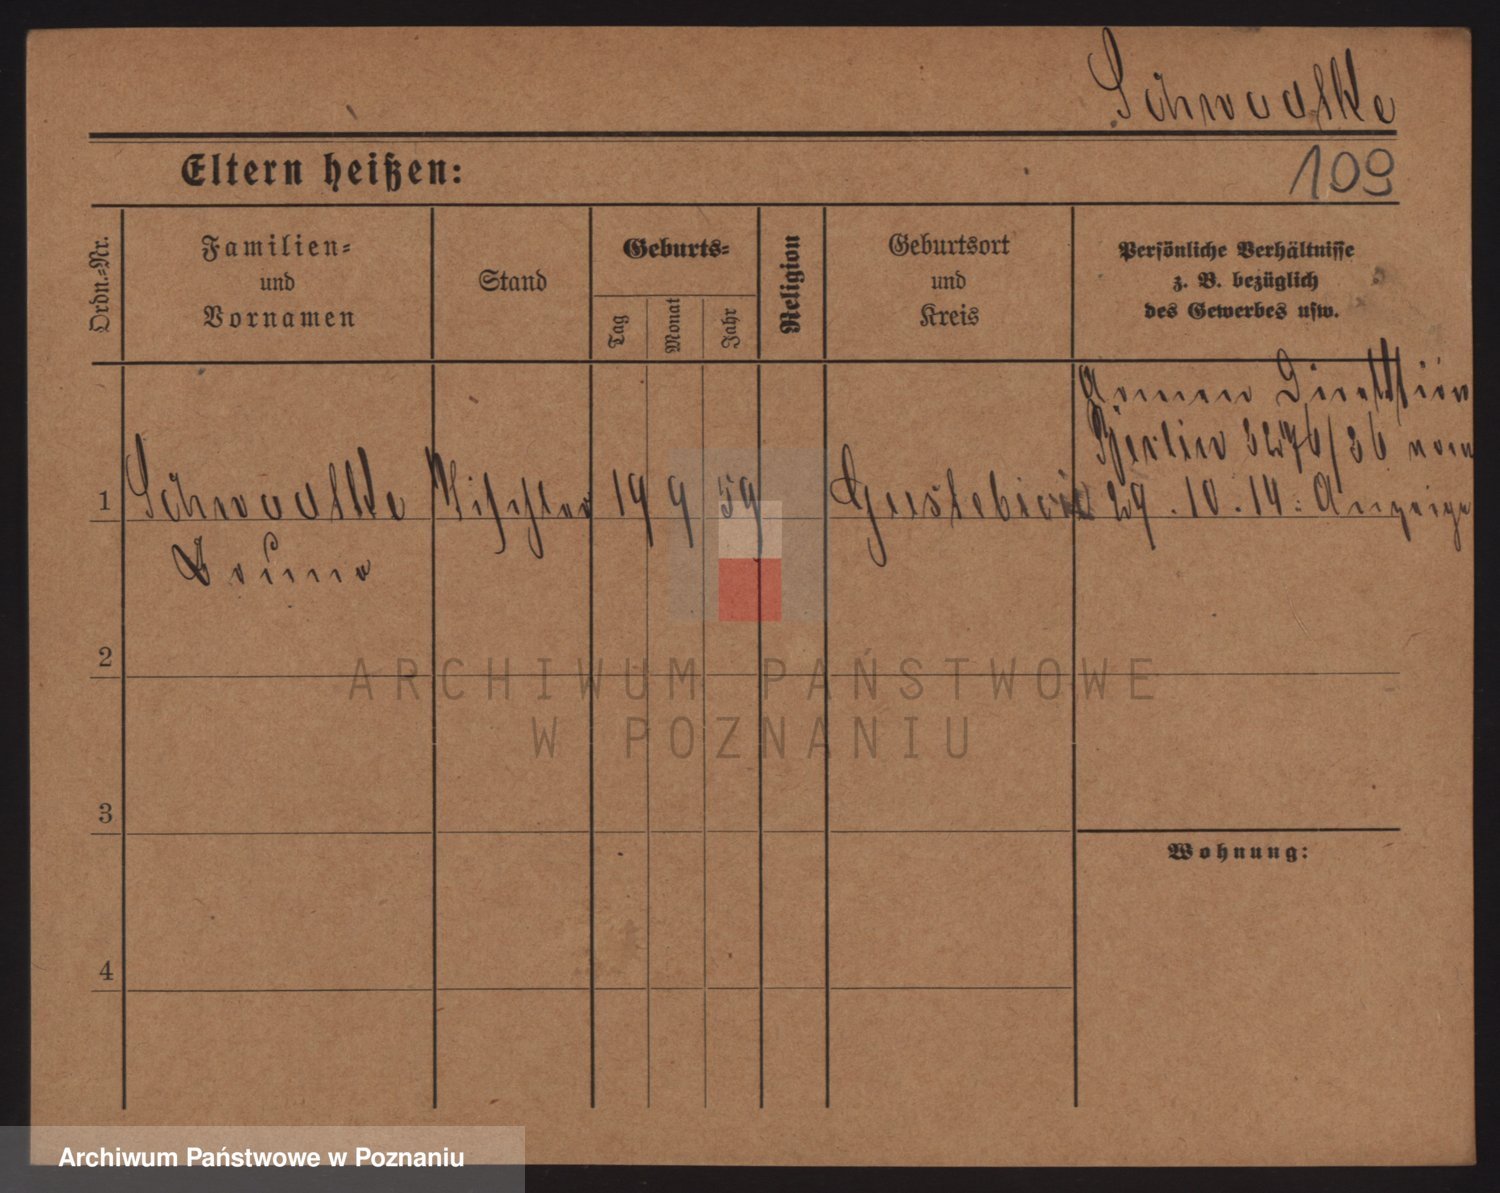 Schwadtke
Eltern heißen:
109
Ordn.=Nr.
Familien=
und
Vornamen
Stand
Geburts=
Tag
Monat
Jahr
Religion
Geburtsort
und
Kreis
Persönliche Verhältnisse
z. B. bezüglich
des Gewerbes usw.
Armen Direktion
Berlin 3276/36 vom
29.10.14: Anzeige
1
Tischler
19
9
59
2
ARCHIWUM PAŃSTWOWE
W POZNANIU
3
Wohnung:
4
Archiwum Państwowe w Poznaniu